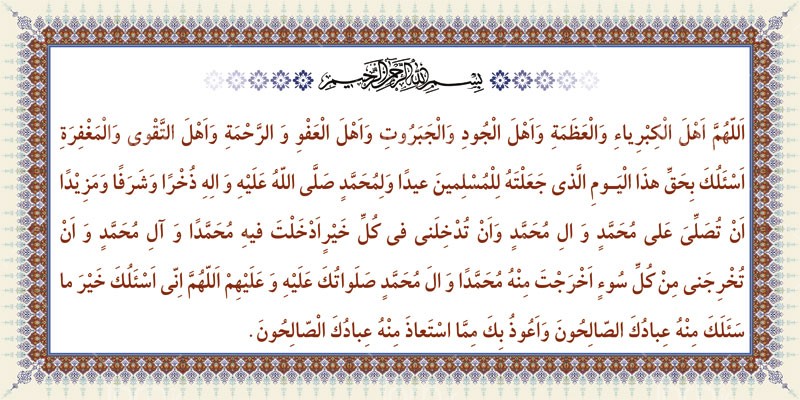 بِسْمِ اللهِ الرَّحْمنِ الرَّحِيمِ
اَللّهُمَّ اَهْلَ الْكِبْرِياءِ وَالْعَظَمَةِ وَاَهْلَ الْجُودِ وَالْجَبَرُوتِ وَاَهْلَ الْعَفْوِ وَ الرَّحْمَةِ وَاَهْلَ التَّقْوى وَالْمَغْفِرَةِ
اَسْئَلُكَ بِحَقِّ هذَا الْيَـومِ الَّذى جَعَلْتَهُ لِلْمُسْلِمينَ عيدًا وَلِمُحَمَّدٍ صَلَّى اللهُ عَلَيْهِ وَ الِهِ ذُخْرًا وَشَرَفًا وَمَزِيْدًا
اَنْ تُصَلِّىَ عَلى مُحَمَّدٍ وَ الِ مُحَمَّدٍ وَاَنْ تُدْخِلَنى فى كُلِّ خَيْرٍ اَدْخَلْتَ فيهِ مُحَمَّدًا وَ آلِ مُحَمَّدٍ وَ اَنْ
تُخْرِجَنى مِنْ كُلِّ سُوءٍ اَخْرَجْتَ مِنْهُ مُحَمَّدًا وَ الَ مُحَمَّدٍ صَلَواتُكَ عَلَيْهِ وَ عَلَيْهِمْ اَللّهُمَّ اِنّى اَسْئَلُكَ خَيْرَ ما
سَئَلَكَ مِنْهُ عِبادُكَ الصّالِحُونَ وَاَعُوذُ بِكَ مِمَّا اسْتَعاذَ مِنْهُ عِبادُكَ الْصّالِحُونَ.